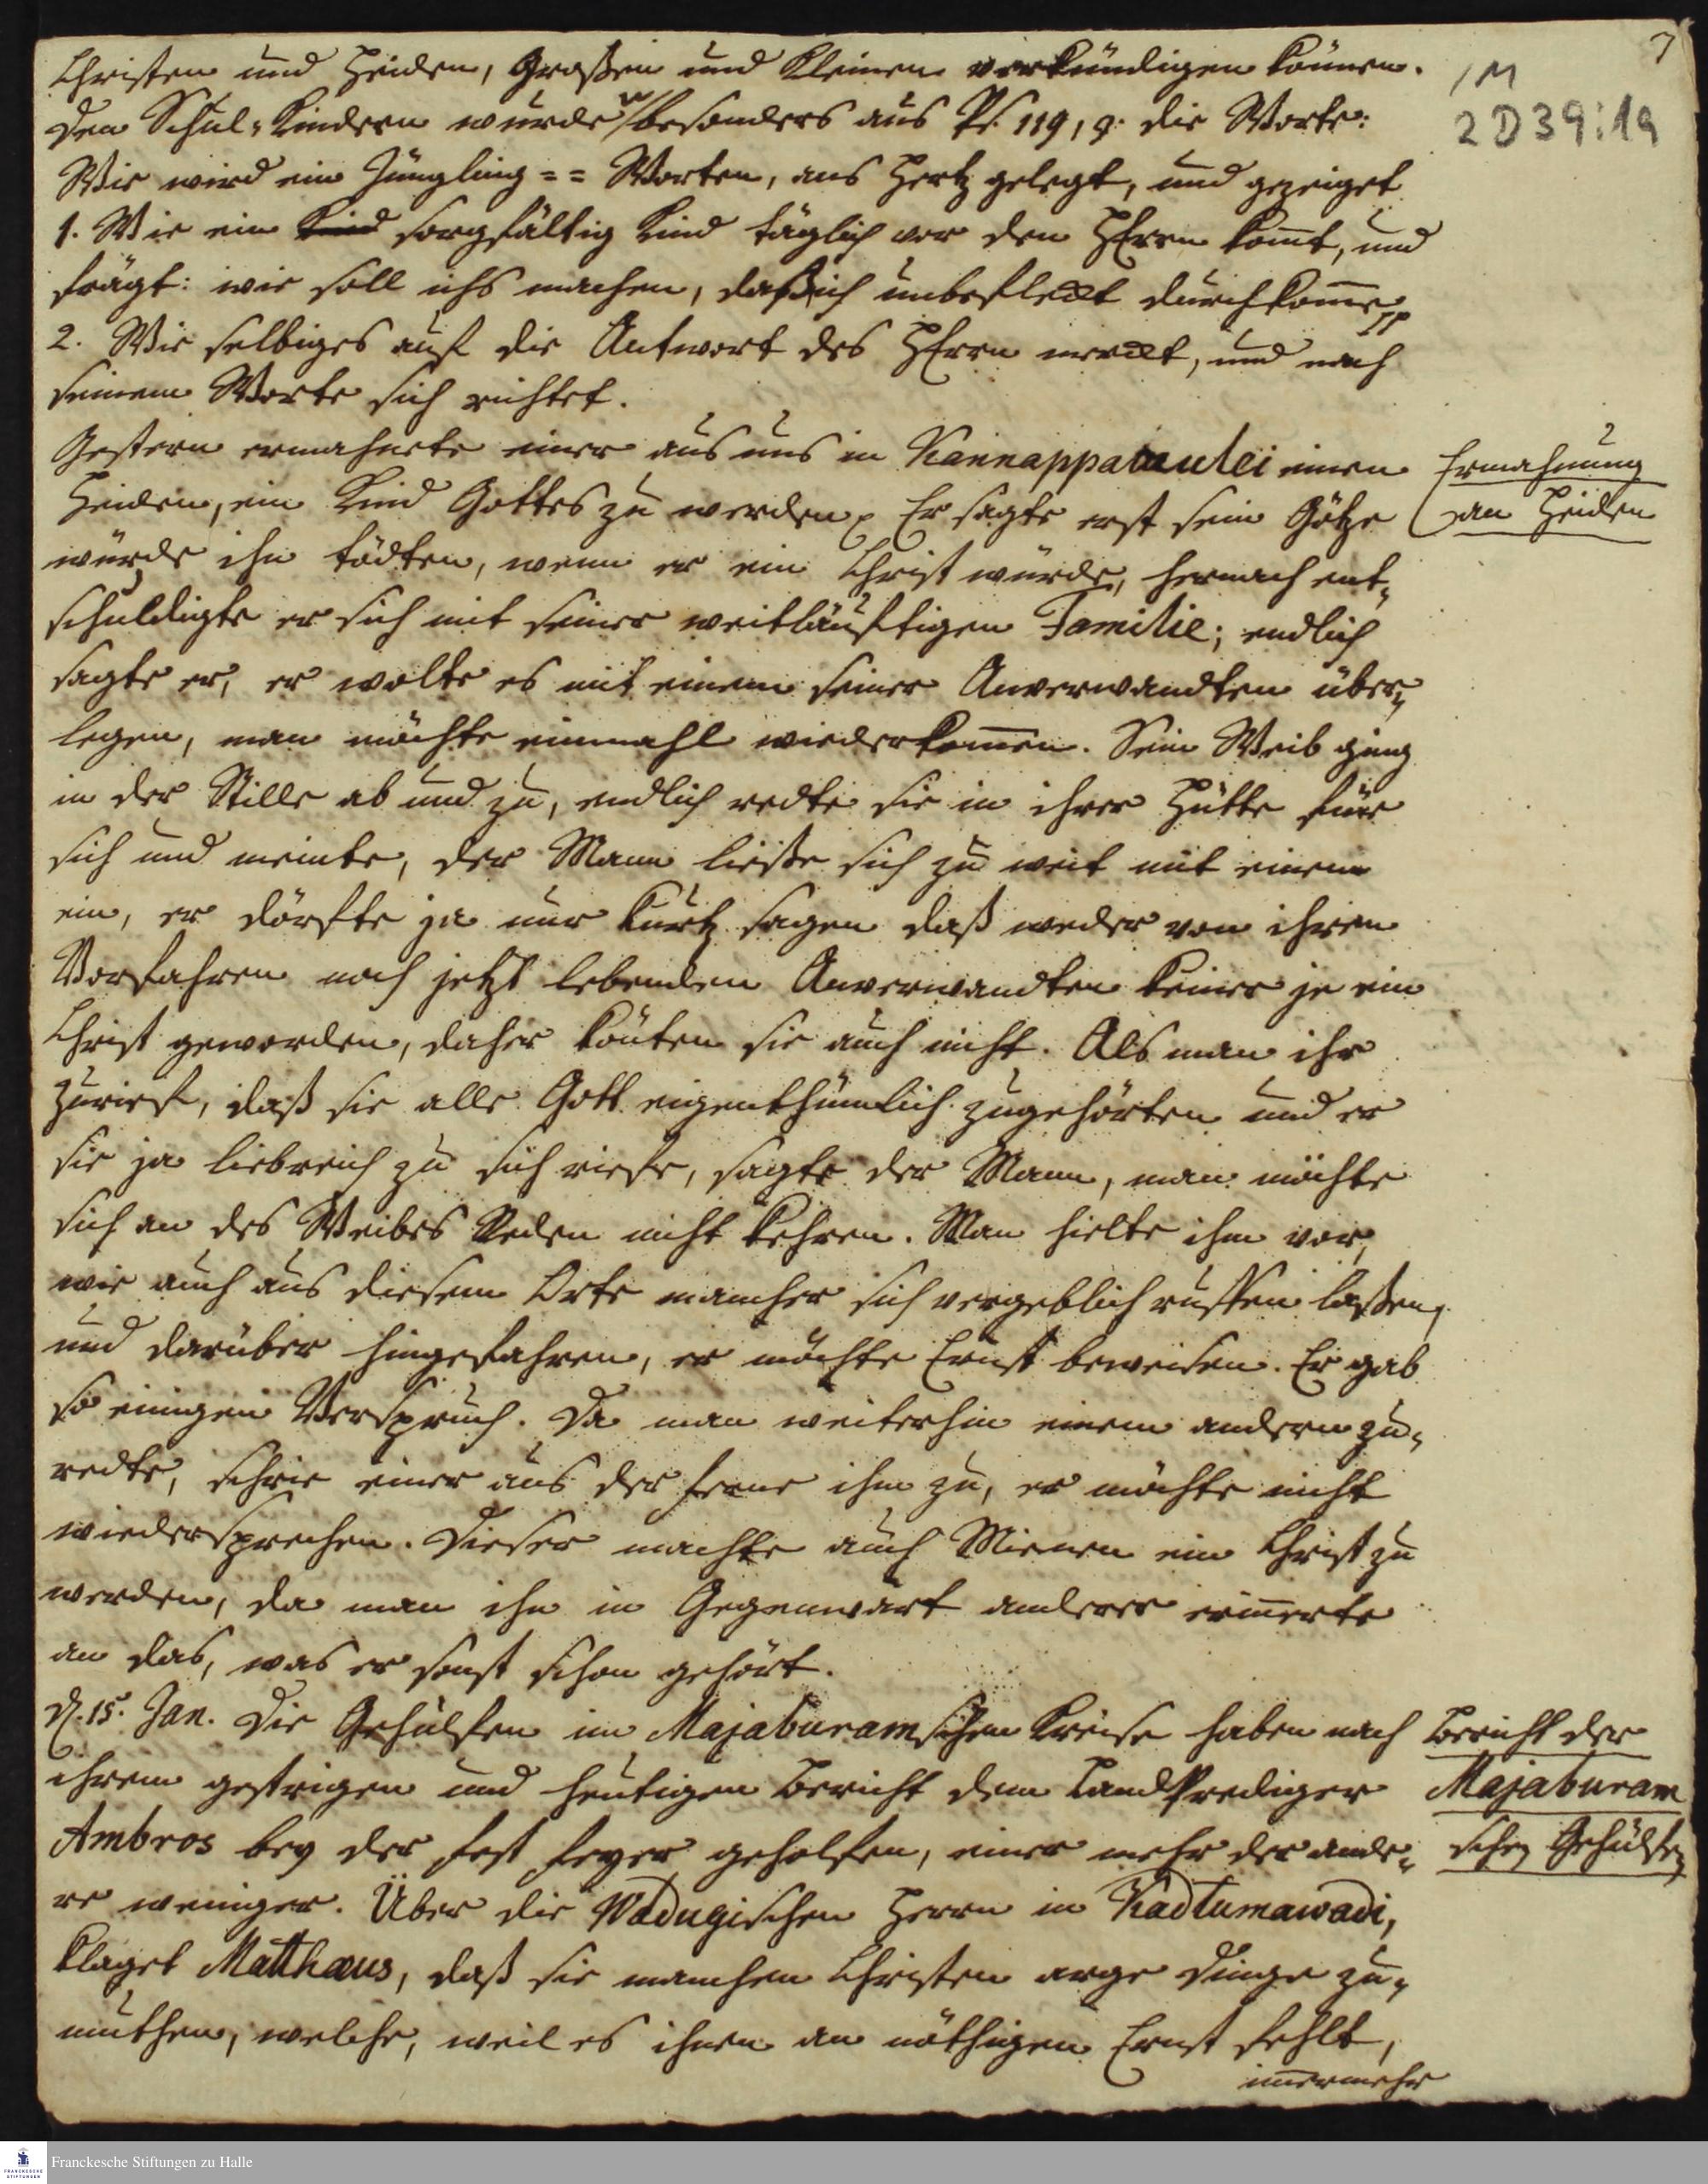 7
1M
2D39:19
Christen und Heiden, Großen und Kleinen verkündigen können.
Den Schul-Kindern wurden besonders aus Ps. 119, 9. die Worte:
Wie wird ein Jüngling == Worten, ans Hertz gelegt, und gezeiget
1. Wie ein Kind sorgfältig Kind täglich vor den HErrn kom̅t, und
frägt: wie soll ichs machen, daß ich unbeflekt durchkom̅e pp
2. Wie selbiges auf die Antwort des HErrn merckt, und nach
seinem Worte sich richtet.
Gestern ermahnete einer aus uns in Kannappamulei einen
Heiden, ein Kind Gottes zu werden. Er sagte erst sein Götze
würde ihn tödten, wenn er ein Christ würde, hernach ent-
schuldigte er sich mit seiner weitläuftigen Familie; endlich
sagte er, er wolte es mit einem seiner Anverwandten über-
legen, man möchte einmahl wiederkom̅en. Sein Weib ging
in der Stille ab und zu, endlich redte sie in ihrer Hütte für
sich und meinte, der Mann ließe sich zu weit mit einem
ein, er dörfte ja nur kurtz sagen daß weder von ihren
Vorfahren noch jetzt lebenden Anverwandten keiner je ein
Christ geworden, daher kön̅ten sie auch nicht. Als man ihr
zurief, daß sie alle Gott eigenthümlich zugehörten und er
sie ja liebreich zu sich riefe, sagte der Mann, man möchte
sich an des Weibes Reden nicht kehren. Man hielte ihm vor,
wie auch aus diesem Orte mancher sich vergeblich ruffen laßen,
und darüber hingefahren, er möchte Ernst beweisen. Er gab
so einigen Verspruch. Da man weiterhin einem andern zu-
redte, schrie einer aus der ferne ihm zu, er möchte nicht
wiedersprechen. Dieser machte auch Mienen ein Christ zu
werden, da man ihn in Gegenwart anderer erin̅erte
an das, was er sonst schon gehört.
d. 15. Jan. Die Gehülfen im Majaburamschen Kreise haben nach
ihrem gestrigen und heutigen Bericht dem LandPrediger
Ambros bey der fest feyer geholfen, einer mehr der ande-
re weniger. Über die Wadugischen Herrn in Kadtumawadi,
klaget Matthæus, daß sie manchen Christen arge Dinge zu-
muthen, welche, weil es ihnen an nöthigen Ernst fehlt,
im̅ermehr
Ermahnung
an Heiden
Bericht der
Majaburam
schen Gehülfen
Franckesche Stiftungen zu Halle
FRANCKESCHE
STIFTUNGEN